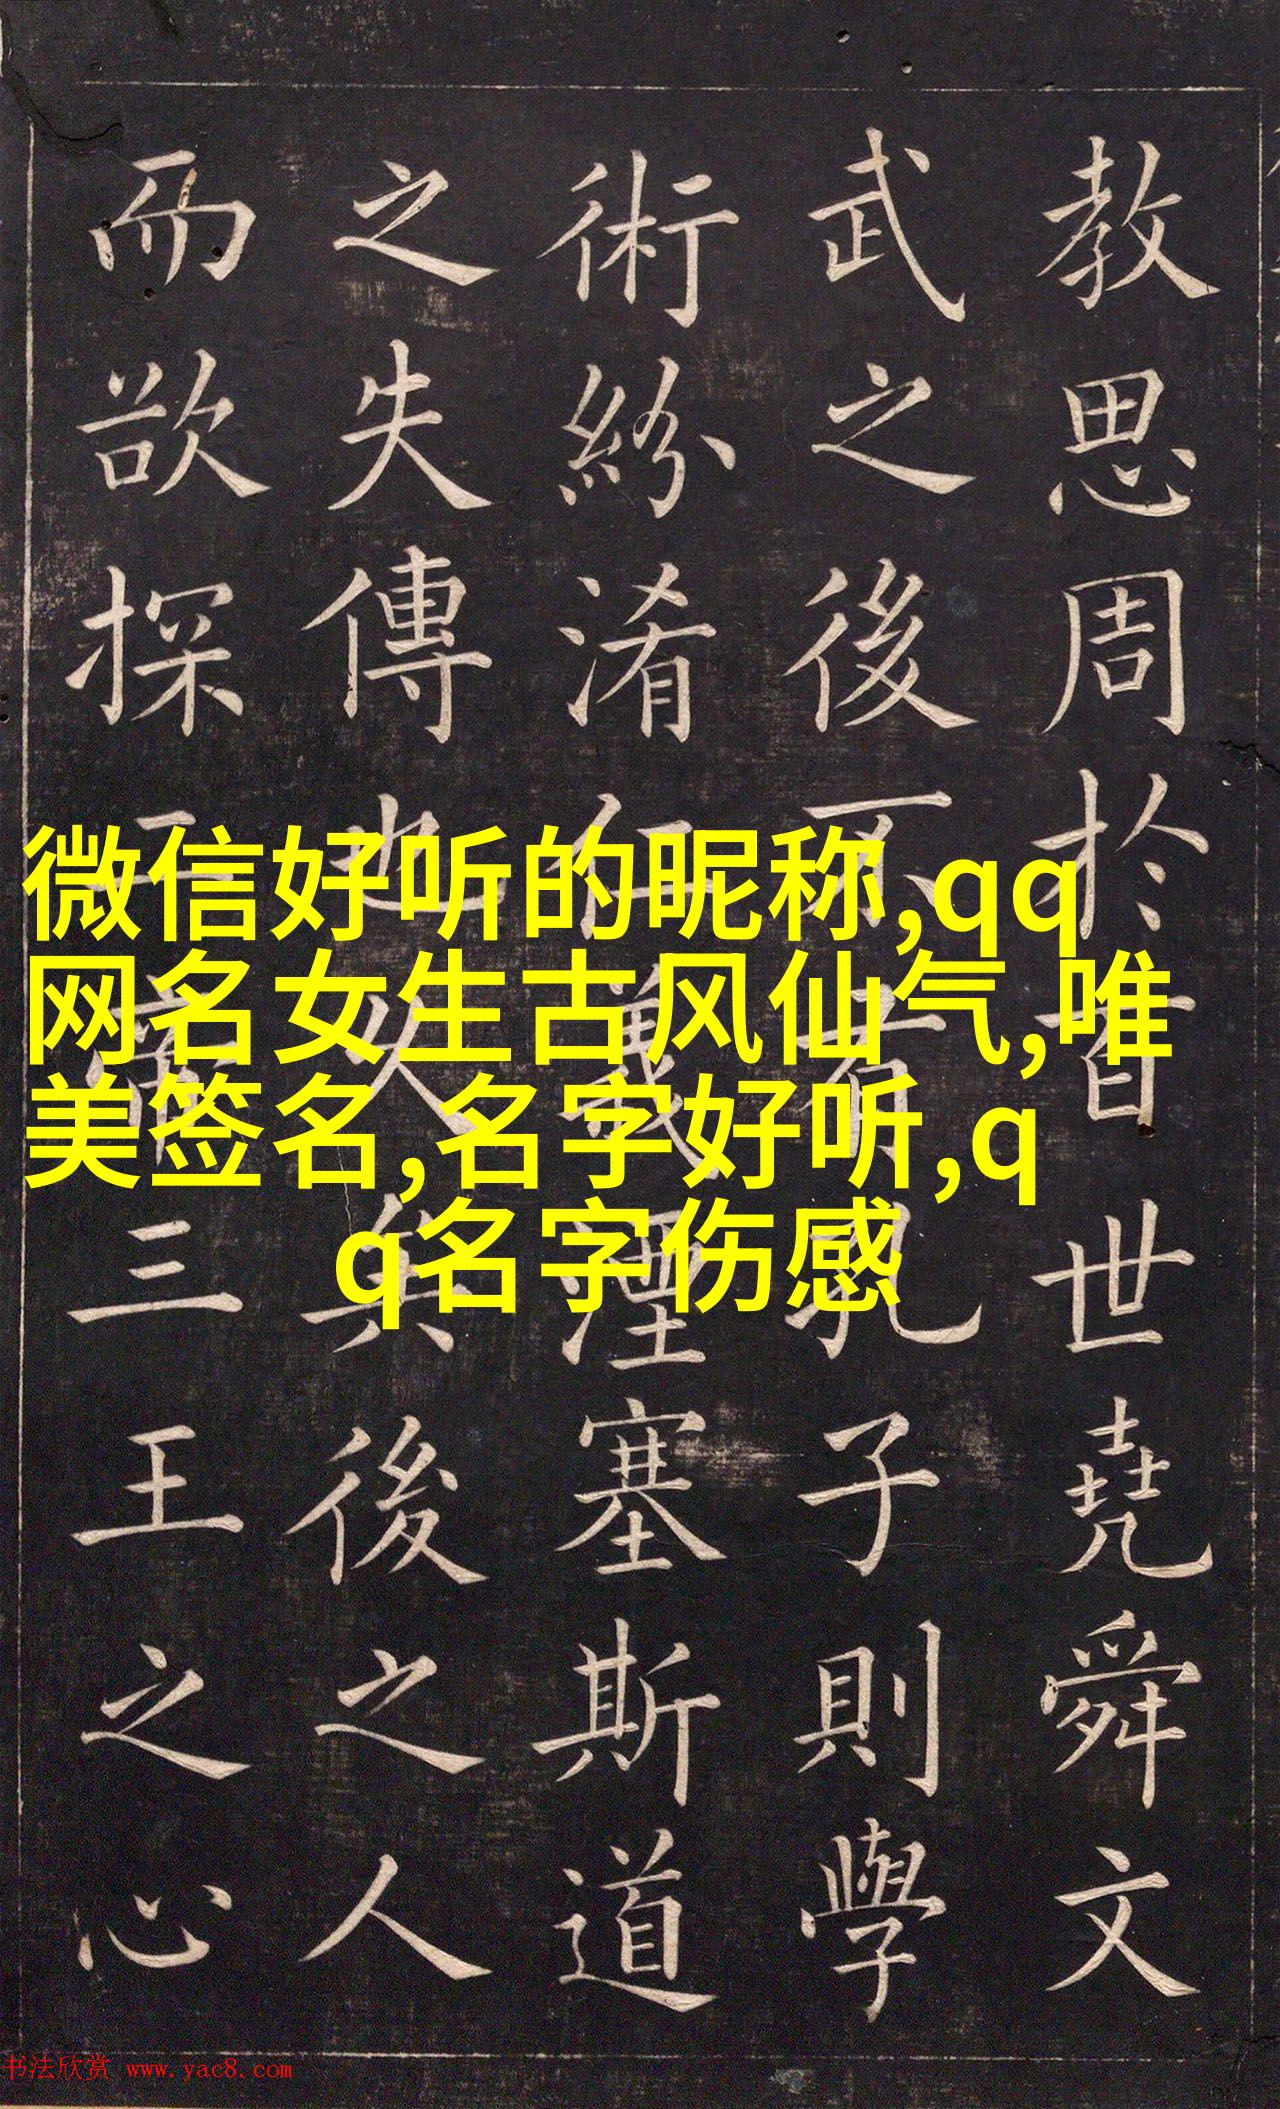 教思周於百世堯舜文
武之後不有孔子則學
術紛淆仁義湮塞斯道
之失傳也久矣後之人
而欲探二帝三王之心
微信好听的昵称,qq
网名女生古风仙气,唯
美签名,名字好听,q
q名字伤感
书法欣赏 www.yac8.com